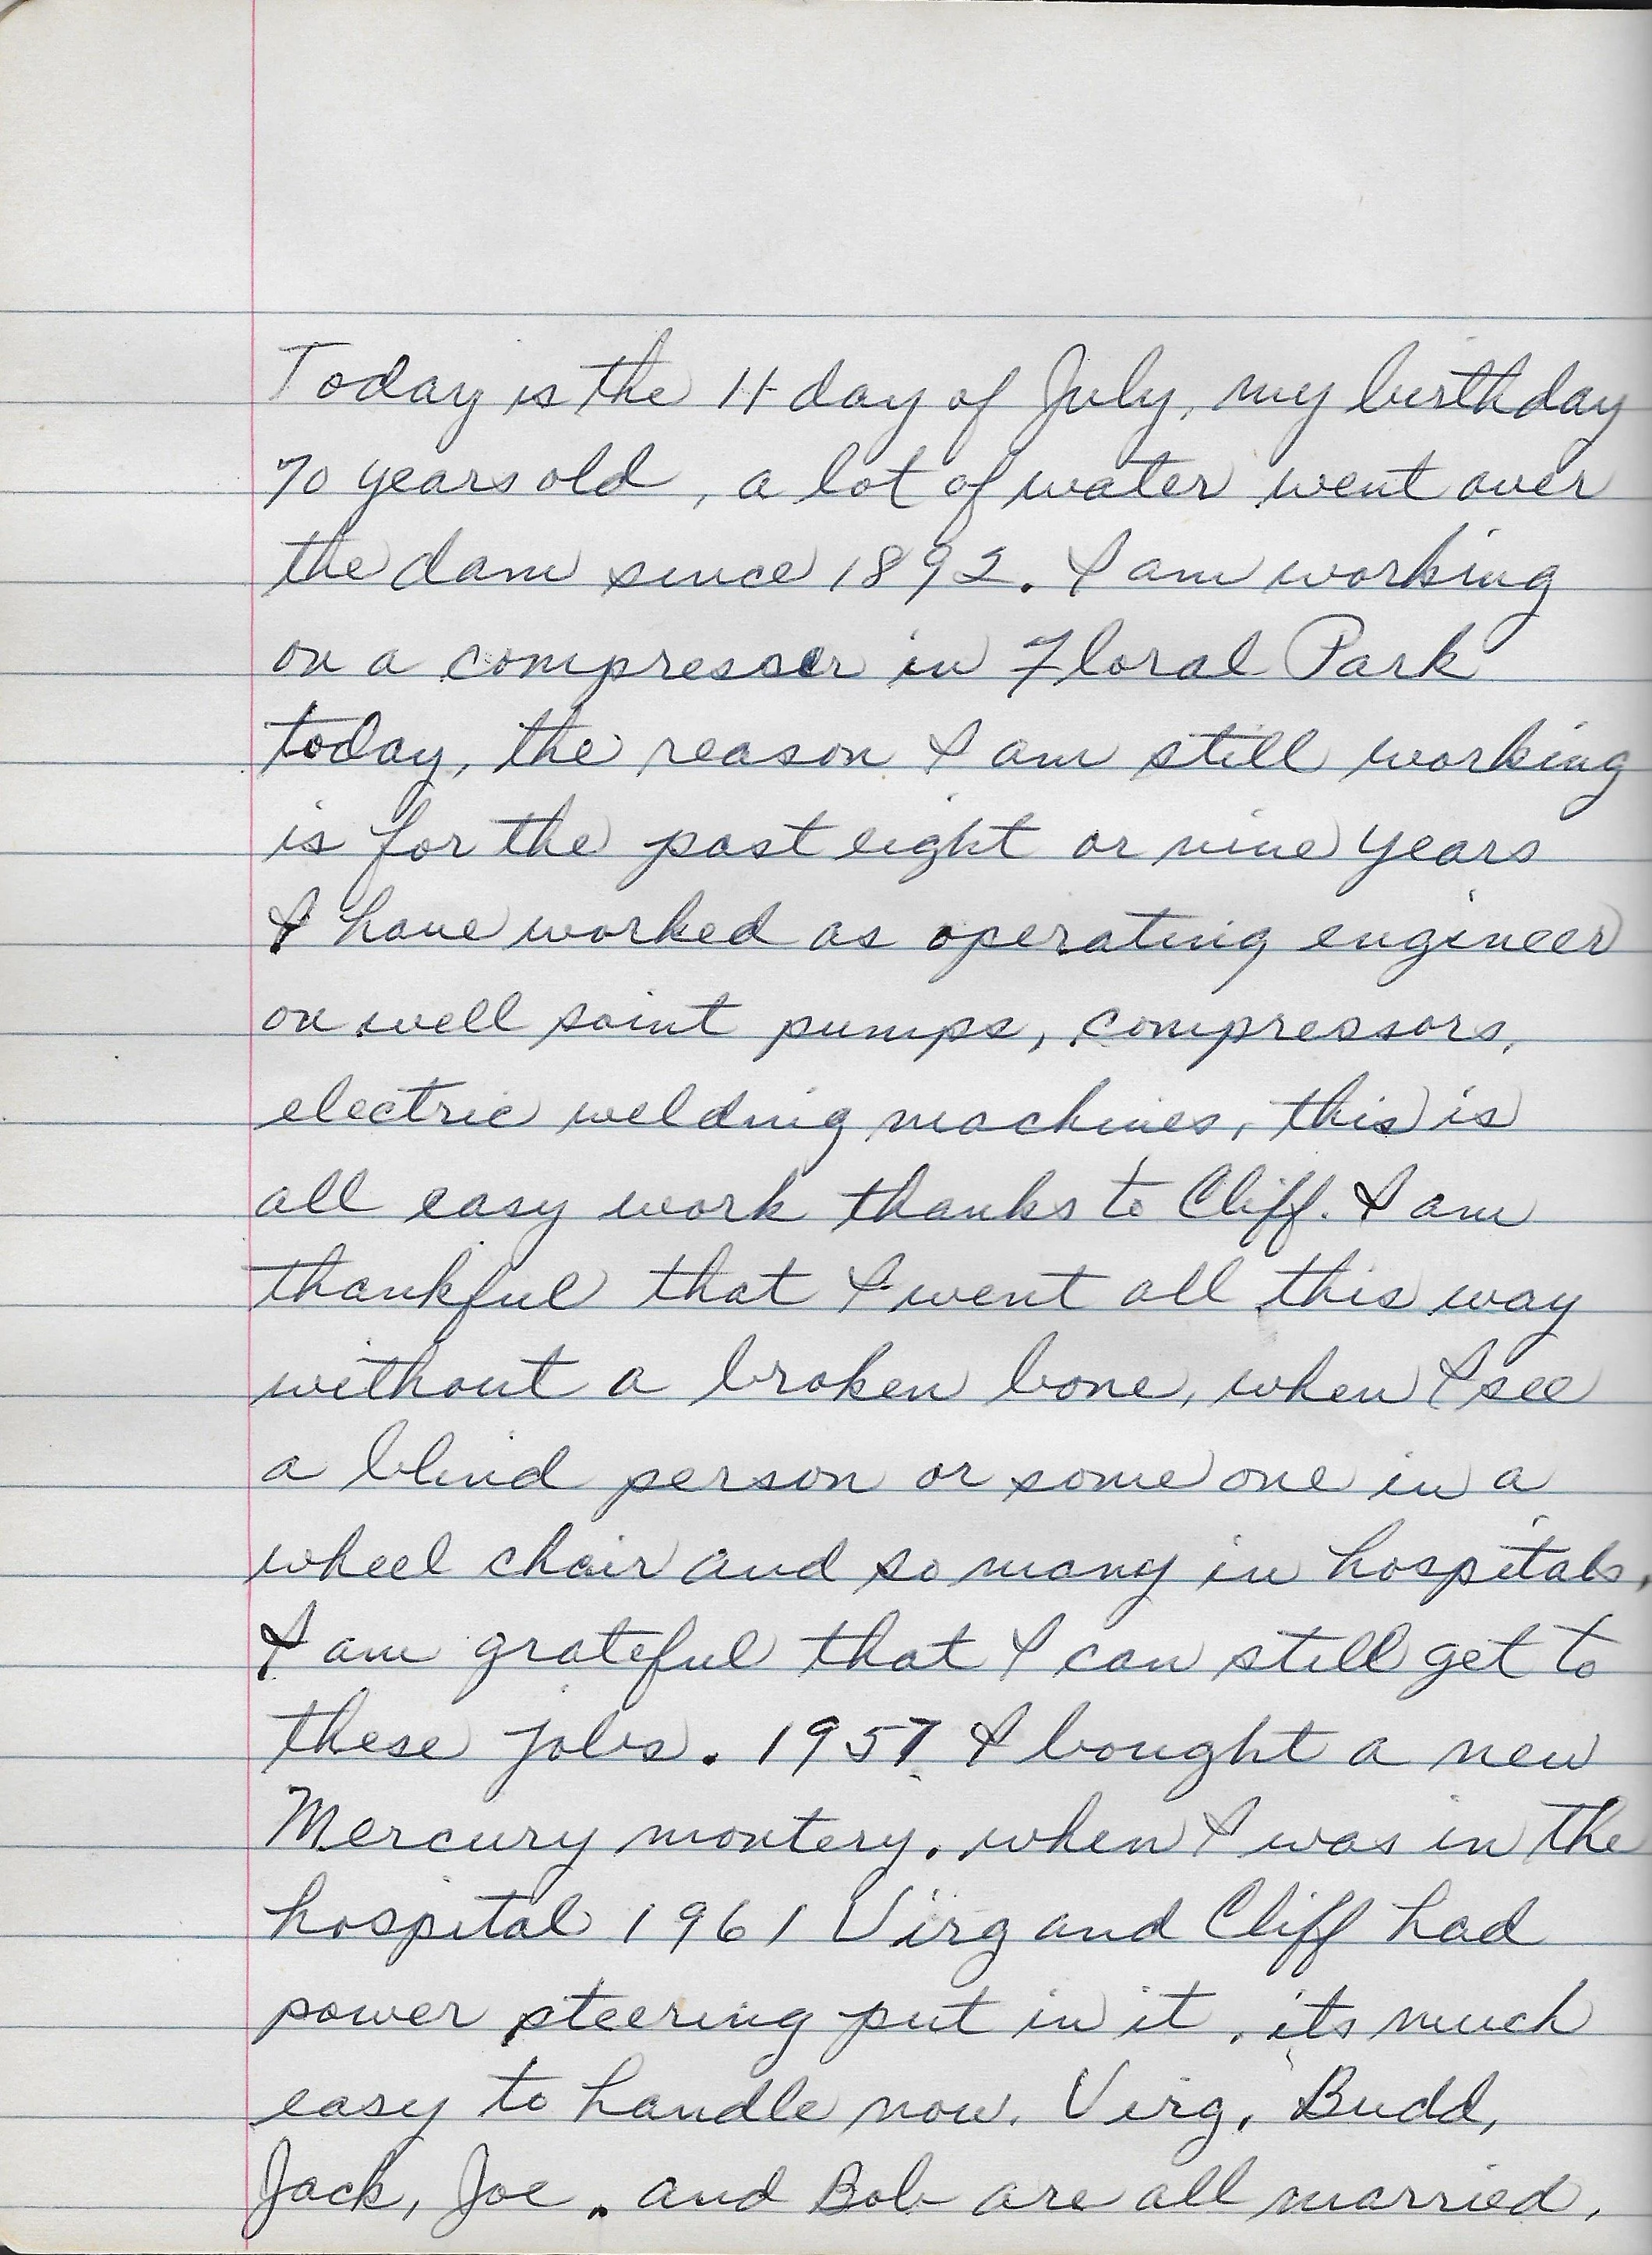 Today is the 11 day of July, my birthday
70 years old, a lot of water went over
the dam since 1892. I am working
on a compresser in Floral Park
today, the reason I am still working
is for the past eight or nine years
I have worked as operating engineer
on well point pumps, compressors,
electric welding machines, this is
all easy work thanks to Cliff. I am
thankful that I went all this way
without a broken bone, when I see
a blind person or some one in a
wheel chair and so many in hospitals,
I am grateful that I can still get to
these jobs. 1957 I bought a new
Mercury montery. when I was in the
hospital 1961 Virg and Cliff had
power steering put in it, its much
easy to handle now. Virg, Budd,
Jack, Joe. and Bob are all married,